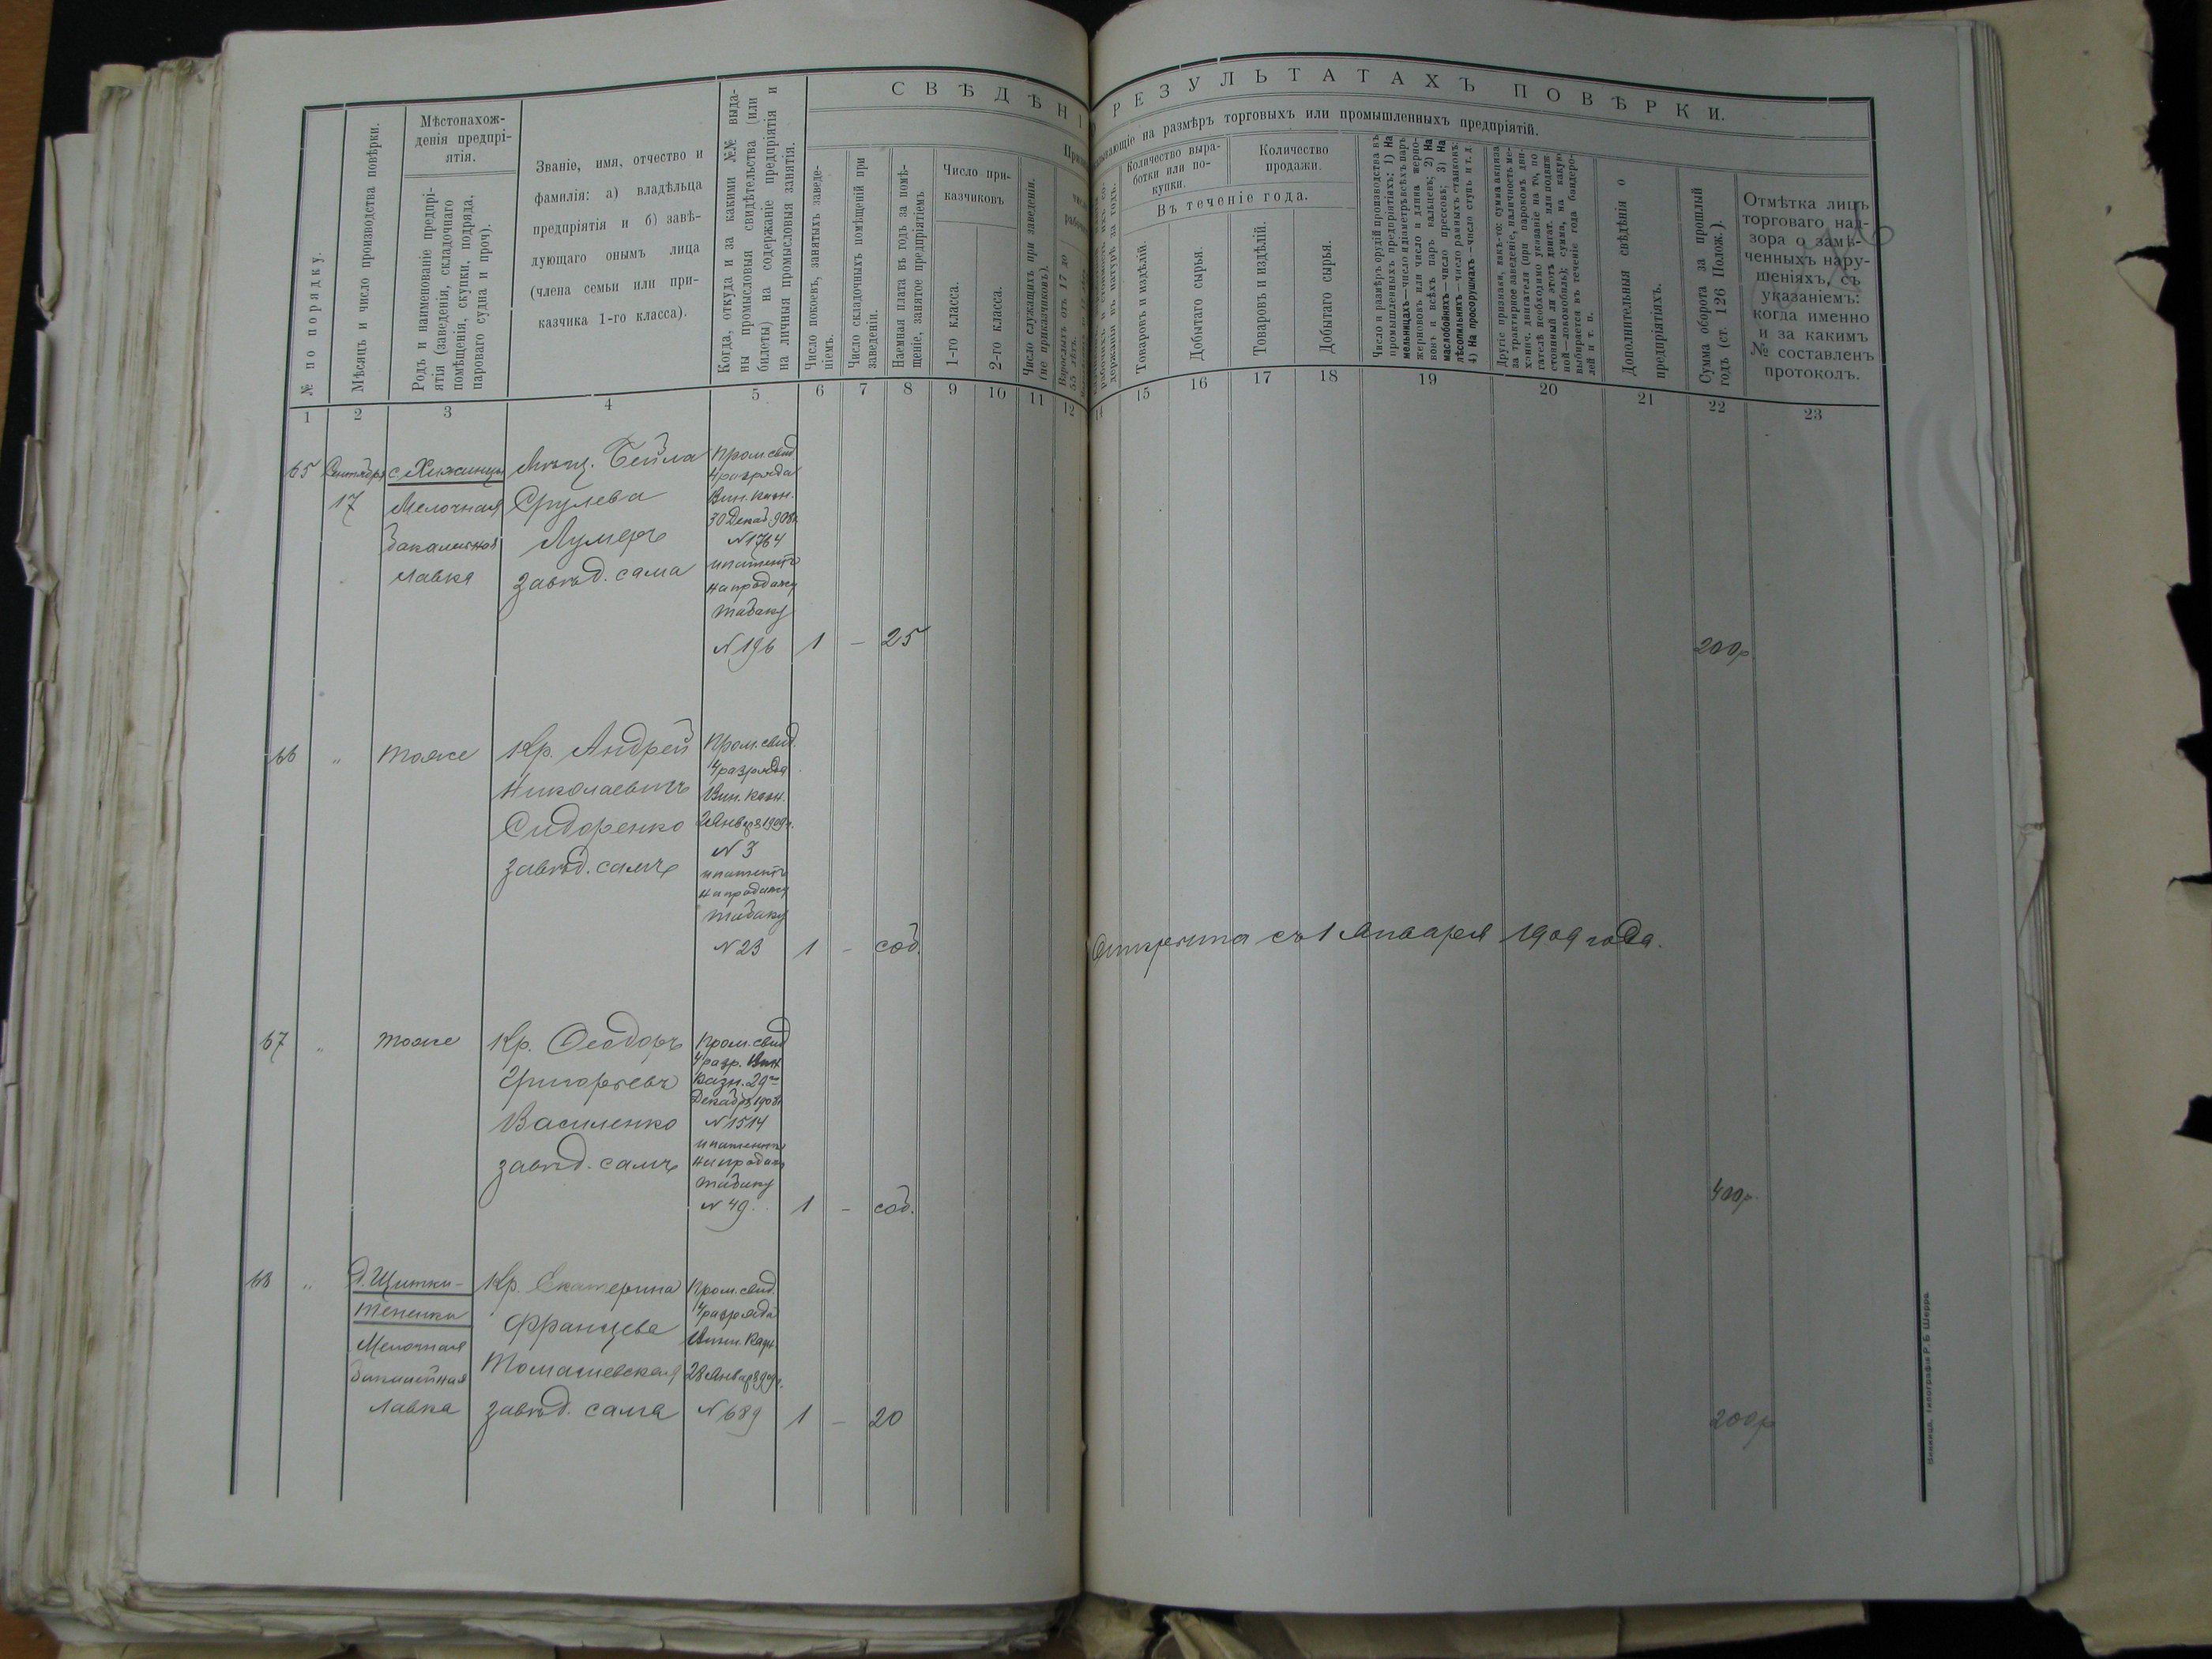 СВѢДѢНІ
РЕЗУЛЬТАТАХЪ ПОВѢРКИ.
зывающіе на размѣръ торговыхъ или промышленныхъ предпріятій.
№ по порядку.
Мѣсяцъ и число производства повѣрки.
Мѣстонахож-
денія предпрі-
ятія.
Родъ и наименованіе предпрі-
ятія (заведенія, складочнаго
помѣщенія, скупки, подряда,
пароваго судна и проч).
Званіе, имя, отчество и
фамилія: а) владѣльца
предпріятія и б) завѣ-
дующаго онымъ лица
(члена семьи или при-
казчика 1-го класса).
Когда, откуда и за какими №№ выда-
ны промысловыя свидѣтельства (или
билеты) на содержаніе предпріятія и
на личныя промысловыя занятія.
Число покоевъ, занятыхъ заведе-
ніемъ.
Число складочныхъ помѣщеній при
заведеніи.
Наемная плата въ годъ за помѣ-
щеніе, занятое предпріятіемъ
Число при-
казчиковъ
1-го класса.
2-го класса.
Число служащихъ при заведеніи.
(не приказчиковъ).
Взрослыхъ отъ 17 до
55 лѣтъ.
Количество выра-
ботки или по-
купки.
Количество
продажи.
Въ теченіе года.
Товаровъ и издѣлій.
Добытаго сырья.
Товаровъ и издѣлій.
Добытаго сырья.
Число и размѣръ орудій производства въ
промышленныхъ предпріятіяхъ: 1) На
мельницахъ—число и діаметръ всѣхъ паръ
жернововъ или число и длина жерно-
вовъ и всѣхъ паръ вальцевъ; 2) На
маслобойняхъ—число прессовъ; 3) На
лѣсопильняхъ—число рамныхъ станковъ;
4) На просорушкахъ—число ступъ и т. д.
Другіе признаки, какъ-то: сумма акциза
за трактирное заведеніе, наличность ме-
ханич. двигателя (при паровомъ дви-
гателѣ необходимо указаніе на то, по
стоянный ли этотъ двигат. или подвиж
ной—локомобиль); сумма, на какую
выбирается въ теченіе года бандеро-
лей и т. п.
Дополнительныя свѣдѣнія о
предпріятіяхъ.
Сумма оборота за прошлый
годъ (ст. 126 Полож.).
Отмѣтка лицъ
торговаго над-
зора о замѣ-
ченныхъ нару-
шеніяхъ, съ
указаніемъ:
когда именно
и за какимъ
№ составленъ
протоколъ.
1 2 3 4 5 6 7 8 9 10 11 12 14 15 16 17 18 19 20 21 22 23
65 Сентября с. Хижинцы Мѣщ. Бейла Пром. свид
4 разряда
17 Мелочная Срулева Вин. казн.
30 Декаб. 908 г.
бакалейная Лумеръ N 1764
лавка завѣд. сама и патентъ
на продажу
табаку
N 196 1 – 25 200 р.
66 " тоже Кр. Андрей Пром. свид.
4 разряда
Николаевичъ Вин. казн.
Сидоренко 2 Января 1909 г.
N 3
завѣд. самъ и патентъ
на продажу
табаку
N 23 1 – соб. Открыта съ 1 Января 1909 года.
67 " тоже Кр. Ѳеодоръ Пром. свид
4 разр. Вин.
Григорьевъ Казн. 29го
Декабря 1908 г.
Василенко N 1514
и патентъ
завѣд. самъ на продажу
табаку
N 49. 1 – соб. 400 р.
68 " Д. Щитки- Кр. Екатерина Пром. свид.
Тененки 4 разряда
Францева
Мелочная Винн. Казн.
бакалейная Томашевская 28 Января 909 г.
лавка завѣд. сама N 689 1 – 20 200 р
Винница, Типографія Р. Б. Шерръ